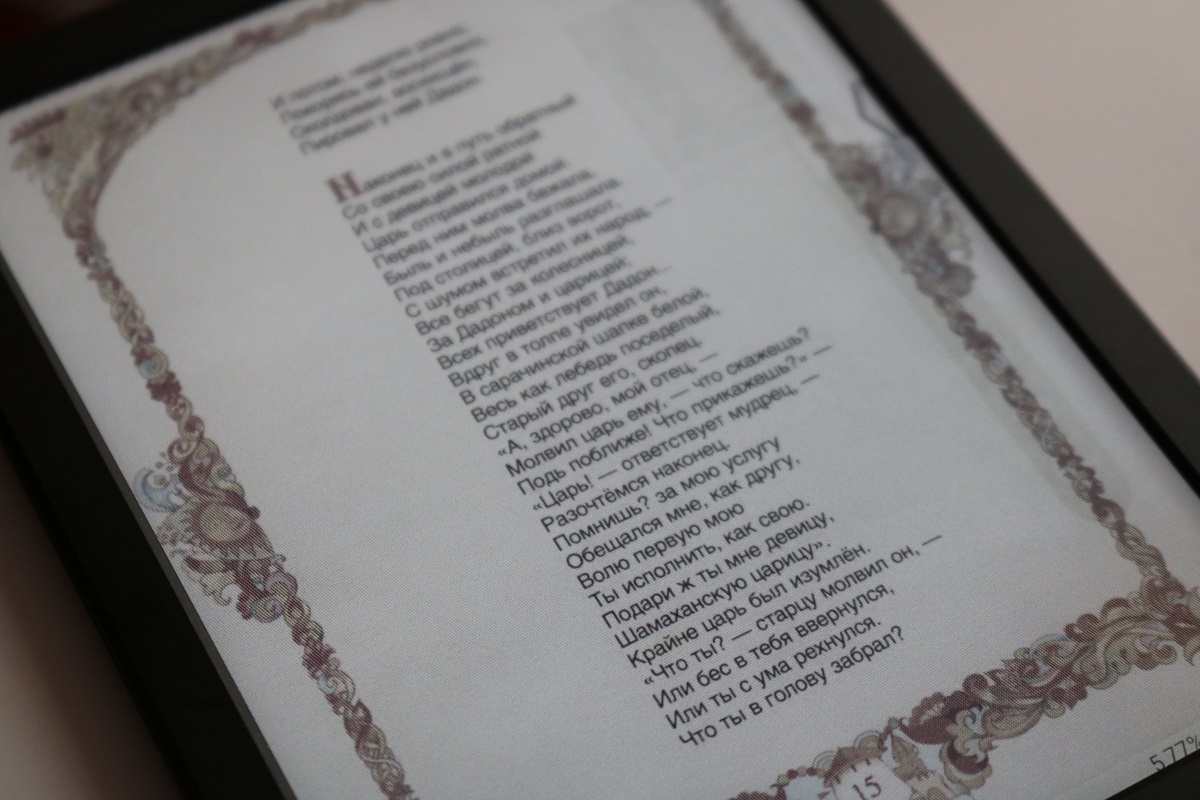 И потом, неделю ровно,
Покорясь ей безусловно,
Околдован, восхищён,
Пировал у ней Дадон.
Наконец и в путь обратный
Со своею силой ратной
И с девицей молодой
Царь отправился домой.
Перед ним молва бежала,
Быль и небыль разглашала.
Под столицей, близ ворот,
С шумом встретил их народ, —
Все бегут за колесницей,
За Дадоном и царицей;
Всех приветствует Дадон...
Вдруг в толпе увидел он,
В сарачинской шапке белой,
Весь как лебедь поседелый,
Старый друг его, скопец.
«А, здорово, мой отец, —
Молвил царь ему, — что скажешь?
Подь поближе! Что прикажешь?» —
«Царь! — ответствует мудрец, —
Разочтёмся наконец.
Помнишь? за мою услугу
Обещался мне, как другу,
Волю первую мою
Ты исполнить, как свою.
Подари ж ты мне девицу,
Шамаханскую царицу».
Крайне царь был изумлён.
«Что ты? — старцу молвил он, —
Или бес в тебя ввернулся,
Или ты с ума рехнулся.
Что ты в голову забрал?
15
5.77%